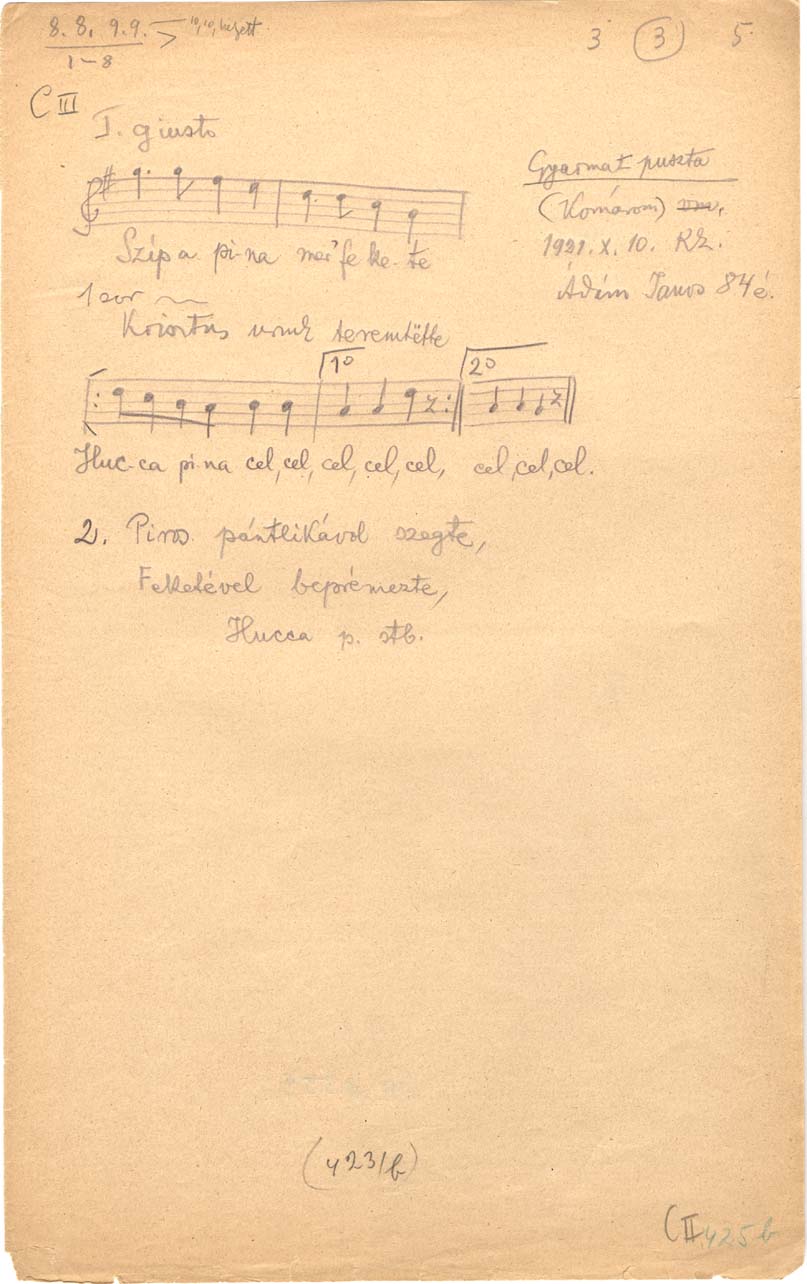 8. 8. 9. 9. 10, 10,
1-8
3 (3) 5
C III
T. giusto
Gyarmat puszta
(Komárom) vm.
1921. X. 10. KZ.
Ádám János 84 é.
Szép a pi-na mer' fe ke-te
1 sor
Krisztus urunk teremtëtte
1º 2º
Huc-ca pi-na cel, cel, cel, cel, cel, cel, cel, cel.
2. Piros pántlikávol szegte,
Feketével beprémezte,
Hucca p. stb.
(423/b)
C II 425 b